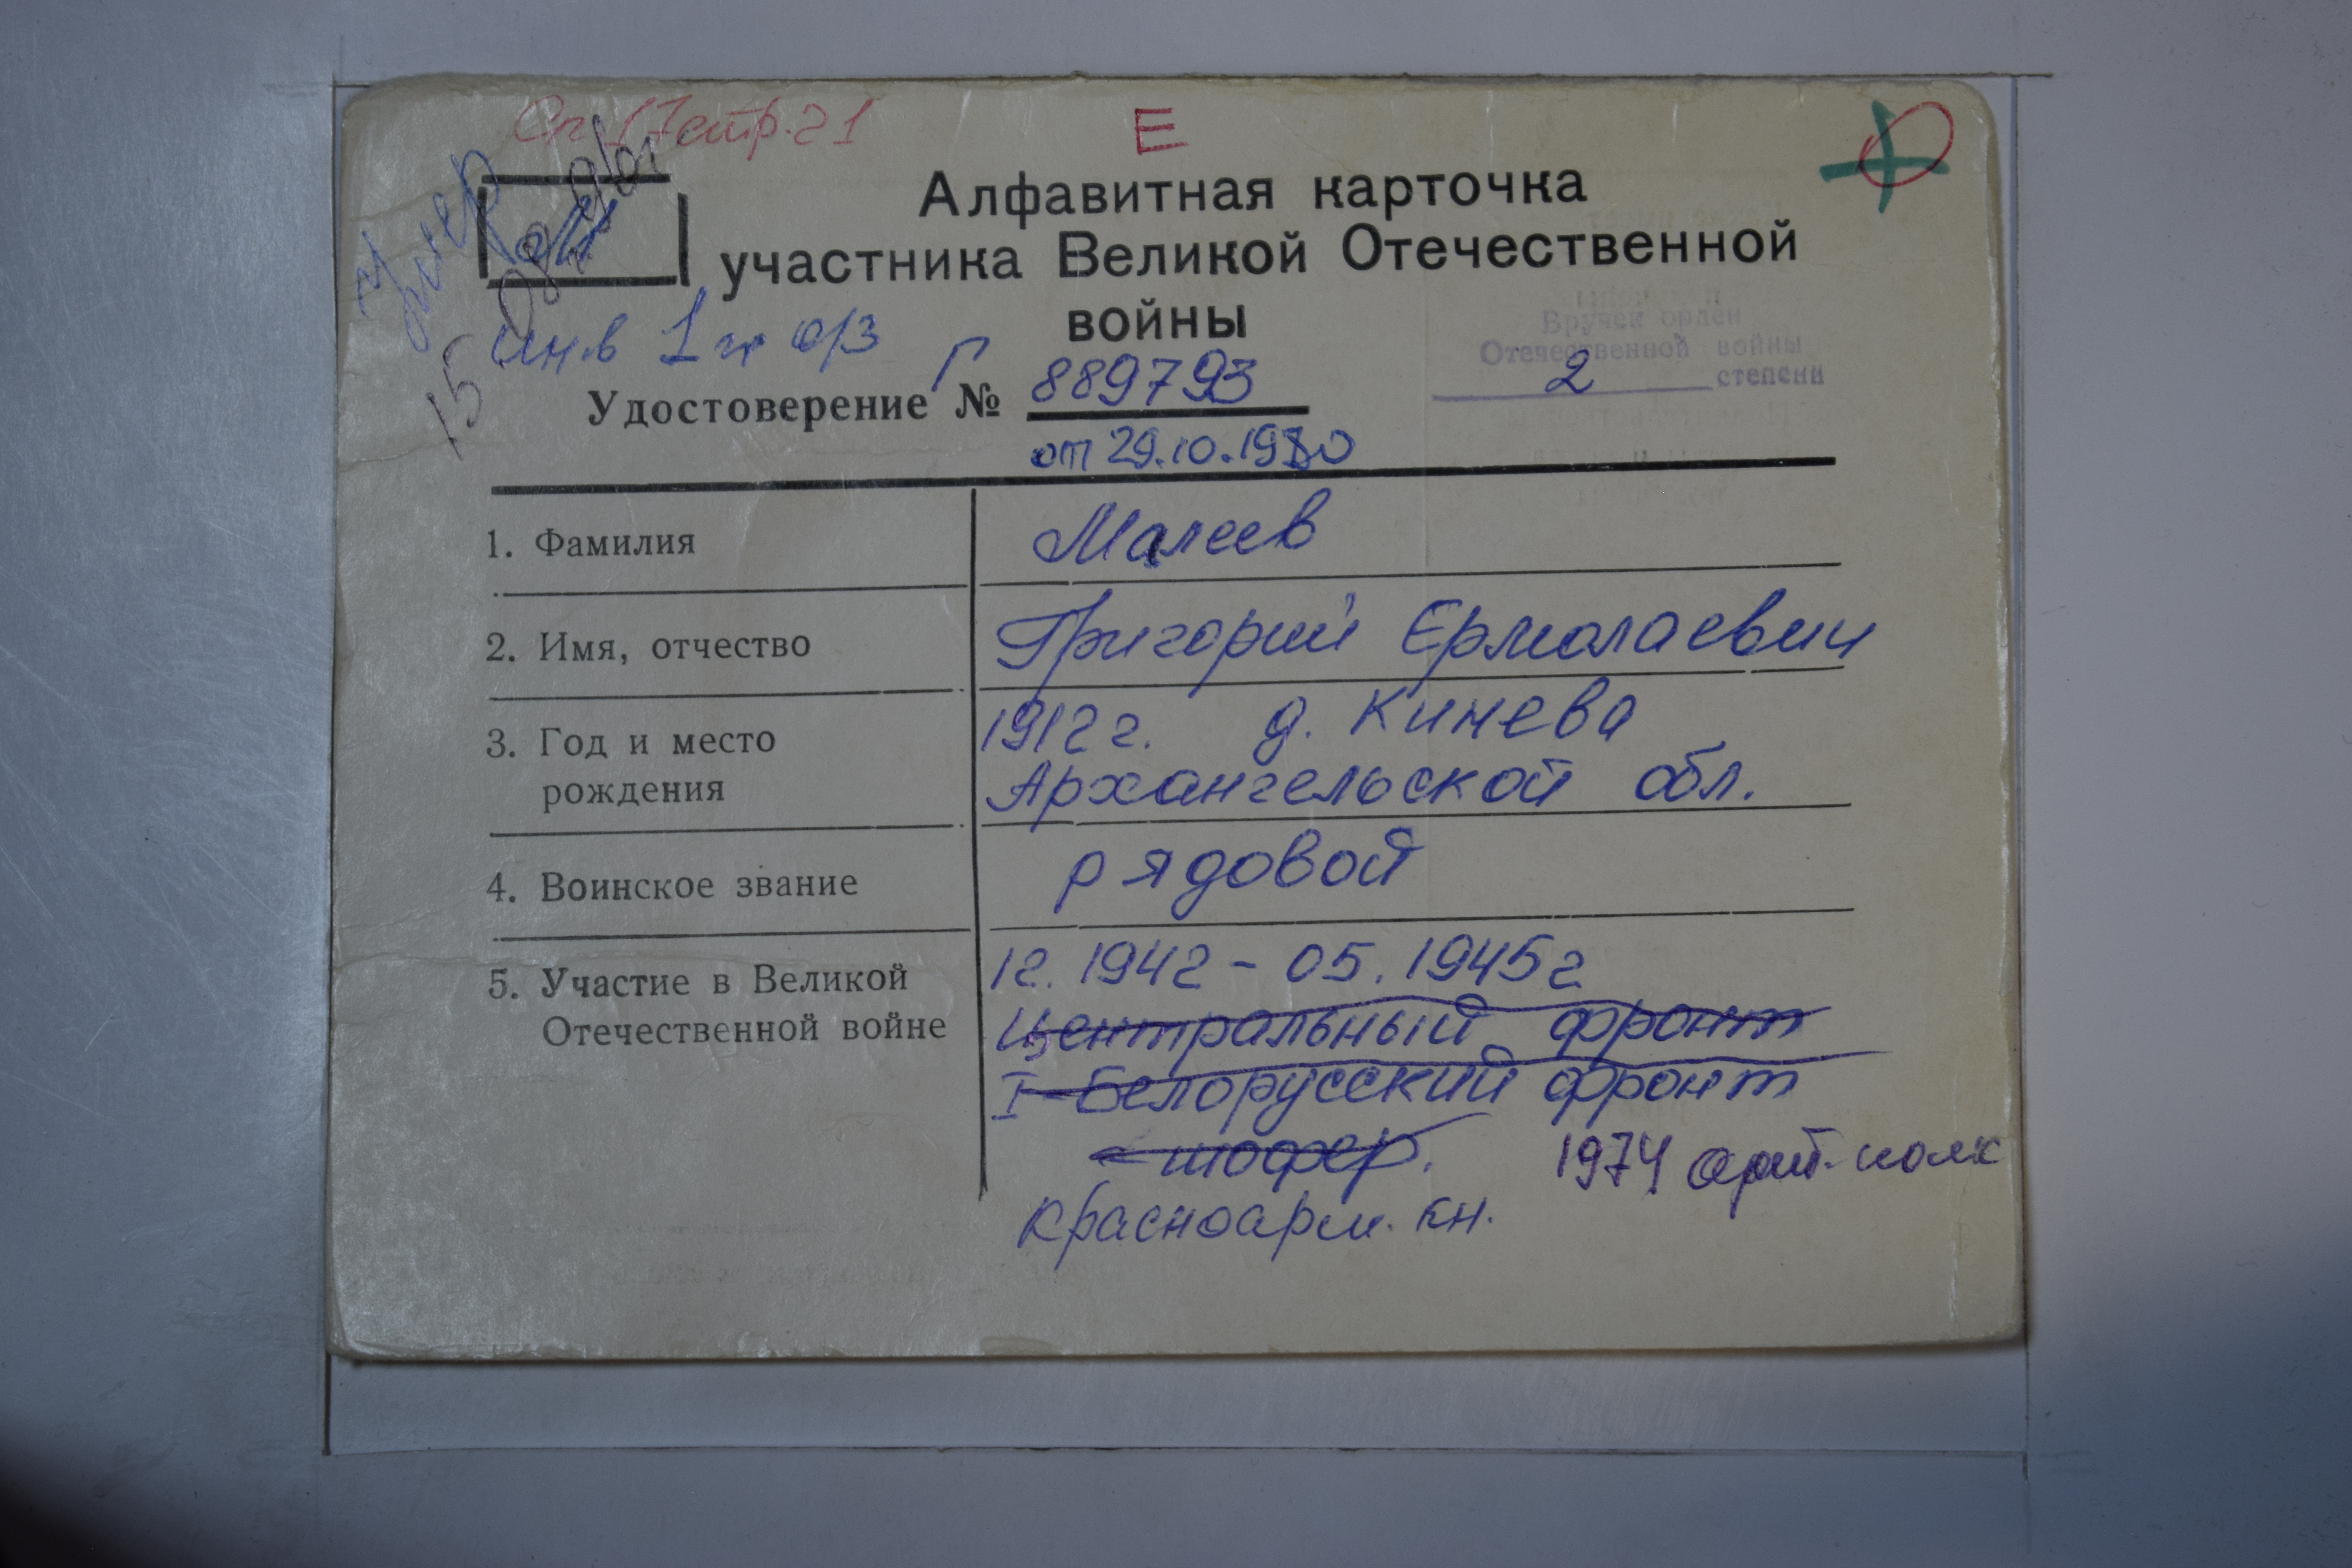 стр. 21
Е
Алфавитная карточка
участника Великой Отечественной
войны
умер
15
инв 1 гр о/з
Вручен орден
Отечественной войны
2 степени
Удостоверение № Г 889793
от 29.10.1980
1. Фамилия Малеев
2. Имя, отчество Григорий Ермолаевич
3. Год и место 1912 г. д. Кинева
рождения Архангельской обл.
4. Воинское звание рядовой
5. Участие в Великой 12.1942 - 05.1945г
Отечественной войне Центральный фронт
I Белорусский фронт
шофер. 1974 арт. полк
Красноарм. кн.